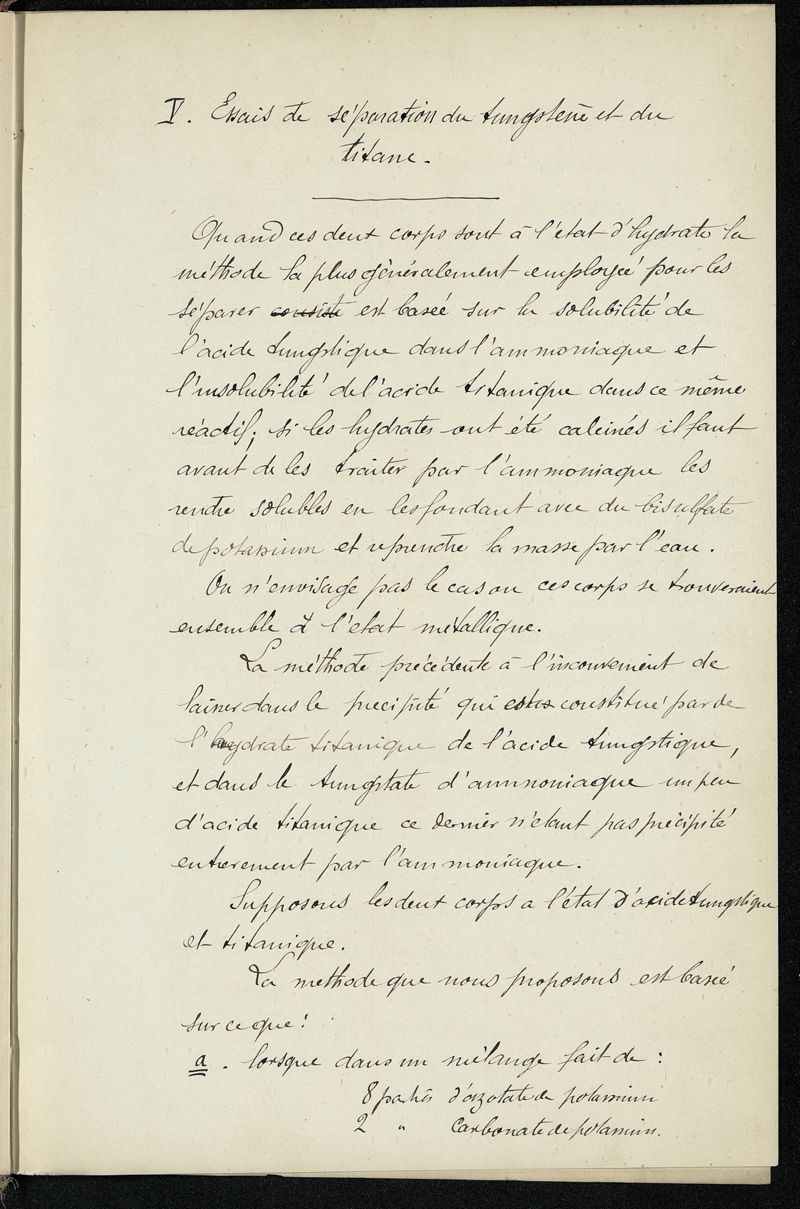 V. Essais de séparation du tungstène et du
titane.
Quand ces deux corps sont à l'état d'hydrate la
méthode la plus généralement employée pour les
séparer consiste est basée sur la solubilité de
l'acide tungstique dans l'ammoniaque et
l'insolubilité de l'acide titanique dans ce même
réactif; si les hydrates ont été calcinés il faut
avant de les traiter par l'ammoniaque les
rendre solubles en les fondant avec du bisulfate
de potassium et reprendre la masse par l'eau.
On n'envisage pas le cas ou ces corps se trouveraient
ensemble à l'etat métallique.
La méthode précédente à l'inconvenient de
laisser dans le precipité qui est constitué par de
l'hydrate titanique de l'acide tungstique,
et dans le tungstate d'ammoniaque un peu
d'acide titanique ce dernier n'étant pas précipité
entierement par l'ammoniaque.
Supposons les deux corps a l'état d'acide tungstique
et titanique.
La methode que nous proposons est basée
sur ce que:
a. lorsque dans un mélange fait de:
8 parties d'azotate de potassium
2 " Carbonate de potassium.